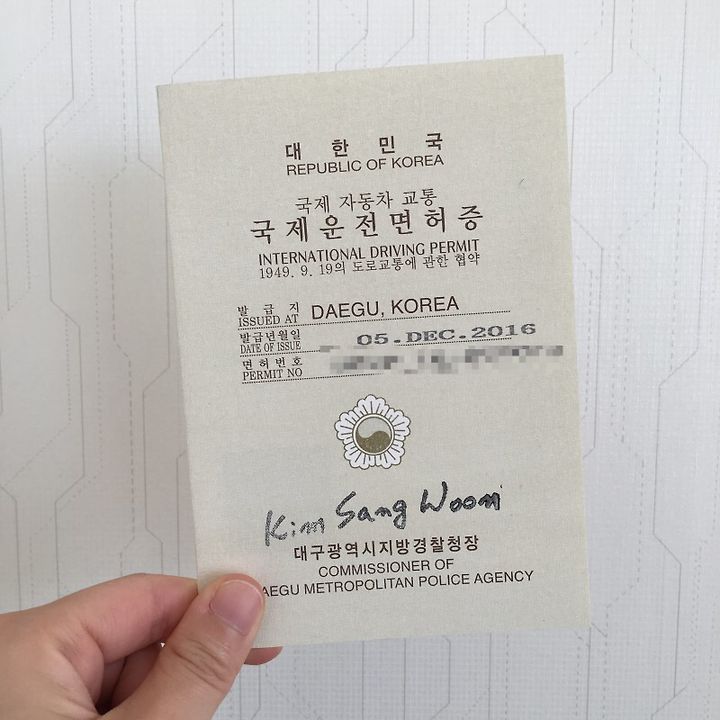 대한민국
REPUBLIC OF KOREA
국제 자동차 교통
국제운전면허증
INTERNATIONAL DRIVING PERMIT
1949. 9. 19의 도로교통에 관한 협약
발급지
ISSUED AT DAEGU, KOREA
발급년월일
DATE OF ISSUE 05.DEC.2016
면허번호
PERMIT NO
Kim Sang Woon
대구광역시지방경찰청장
COMMISSIONER OF
AEGU METROPOLITAN POLICE AGENCY